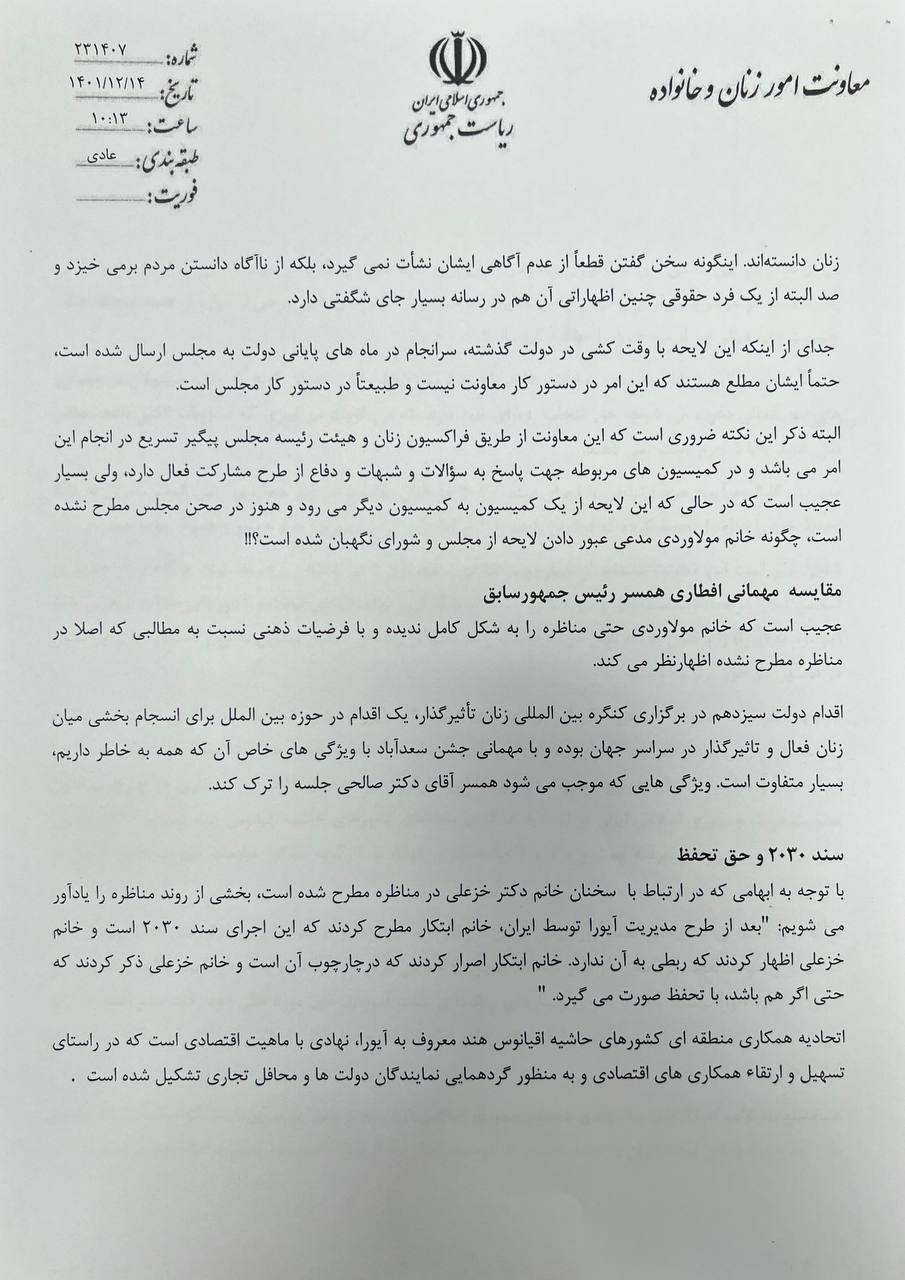 معاونت امور زنان و خانواده
جمهوری اسلامی ایران
ریاست جمهوری
شماره: ۲۳۱۴۰۷
تاریخ: ۱۴۰۱/۱۲/۱۴
ساعت: ۱۰:۱۳
طبقه بندی: عادی
فوریت:
زنان دانسته‌اند. اینگونه سخن گفتن قطعاً از عدم آگاهی ایشان نشأت نمی گیرد، بلکه از ناآگاه دانستن مردم برمی خیزد و
صد البته از یک فرد حقوقی چنین اظهاراتی آن هم در رسانه بسیار جای شگفتی دارد.
جدای از اینکه این لایحه با وقت کشی در دولت گذشته، سرانجام در ماه های پایانی دولت به مجلس ارسال شده است،
حتماً ایشان مطلع هستند که این امر در دستور کار معاونت نیست و طبیعتاً در دستور کار مجلس است.
البته ذکر این نکته ضروری است که این معاونت از طریق فراکسیون زنان و هیئت رئیسه مجلس پیگیر تسریع در انجام این
امر می باشد و در کمیسیون های مربوطه جهت پاسخ به سؤالات و شبهات و دفاع از طرح مشارکت فعال دارد، ولی بسیار
عجیب است که در حالی که این لایحه از یک کمیسیون به کمیسیون دیگر می رود و هنوز در صحن مجلس مطرح نشده
است، چگونه خانم مولاوردی مدعی عبور دادن لایحه از مجلس و شورای نگهبان شده است؟!!
مقایسه مهمانی افطاری همسر رئیس جمهورسابق
عجیب است که خانم مولاوردی حتی مناظره را به شکل کامل ندیده و با فرضیات ذهنی نسبت به مطالبی که اصلا در
مناظره مطرح نشده اظهارنظر می کند.
اقدام دولت سیزدهم در برگزاری کنگره بین المللی زنان تأثیرگذار، یک اقدام در حوزه بین الملل برای انسجام بخشی میان
زنان فعال و تاثیرگذار در سراسر جهان بوده و با مهمانی جشن سعدآباد با ویژگی های خاص آن که همه به خاطر داریم،
بسیار متفاوت است. ویژگی هایی که موجب می شود همسر آقای دکتر صالحی جلسه را ترک کند.
سند ۲۰۳۰ و حق تحفظ
با توجه به ابهامی که در ارتباط با سخنان خانم دکتر خزعلی در مناظره مطرح شده است، بخشی از روند مناظره را یادآور
می شویم: "بعد از طرح مدیریت آیورا توسط ایران، خانم ابتکار مطرح کردند که این اجرای سند ۲۰۳۰ است و خانم
خزعلی اظهار کردند که ربطی به آن ندارد. خانم ابتکار اصرار کردند که درچارچوب آن است و خانم خزعلی ذکر کردند که
حتی اگر هم باشد، با تحفظ صورت می گیرد. "
اتحادیه همکاری منطقه ای کشورهای حاشیه اقیانوس هند معروف به آیورا، نهادی با ماهیت اقتصادی است که در راستای
تسهیل و ارتقاء همکاری های اقتصادی و به منظور گردهمایی نمایندگان دولت ها و محافل تجاری تشکیل شده است .